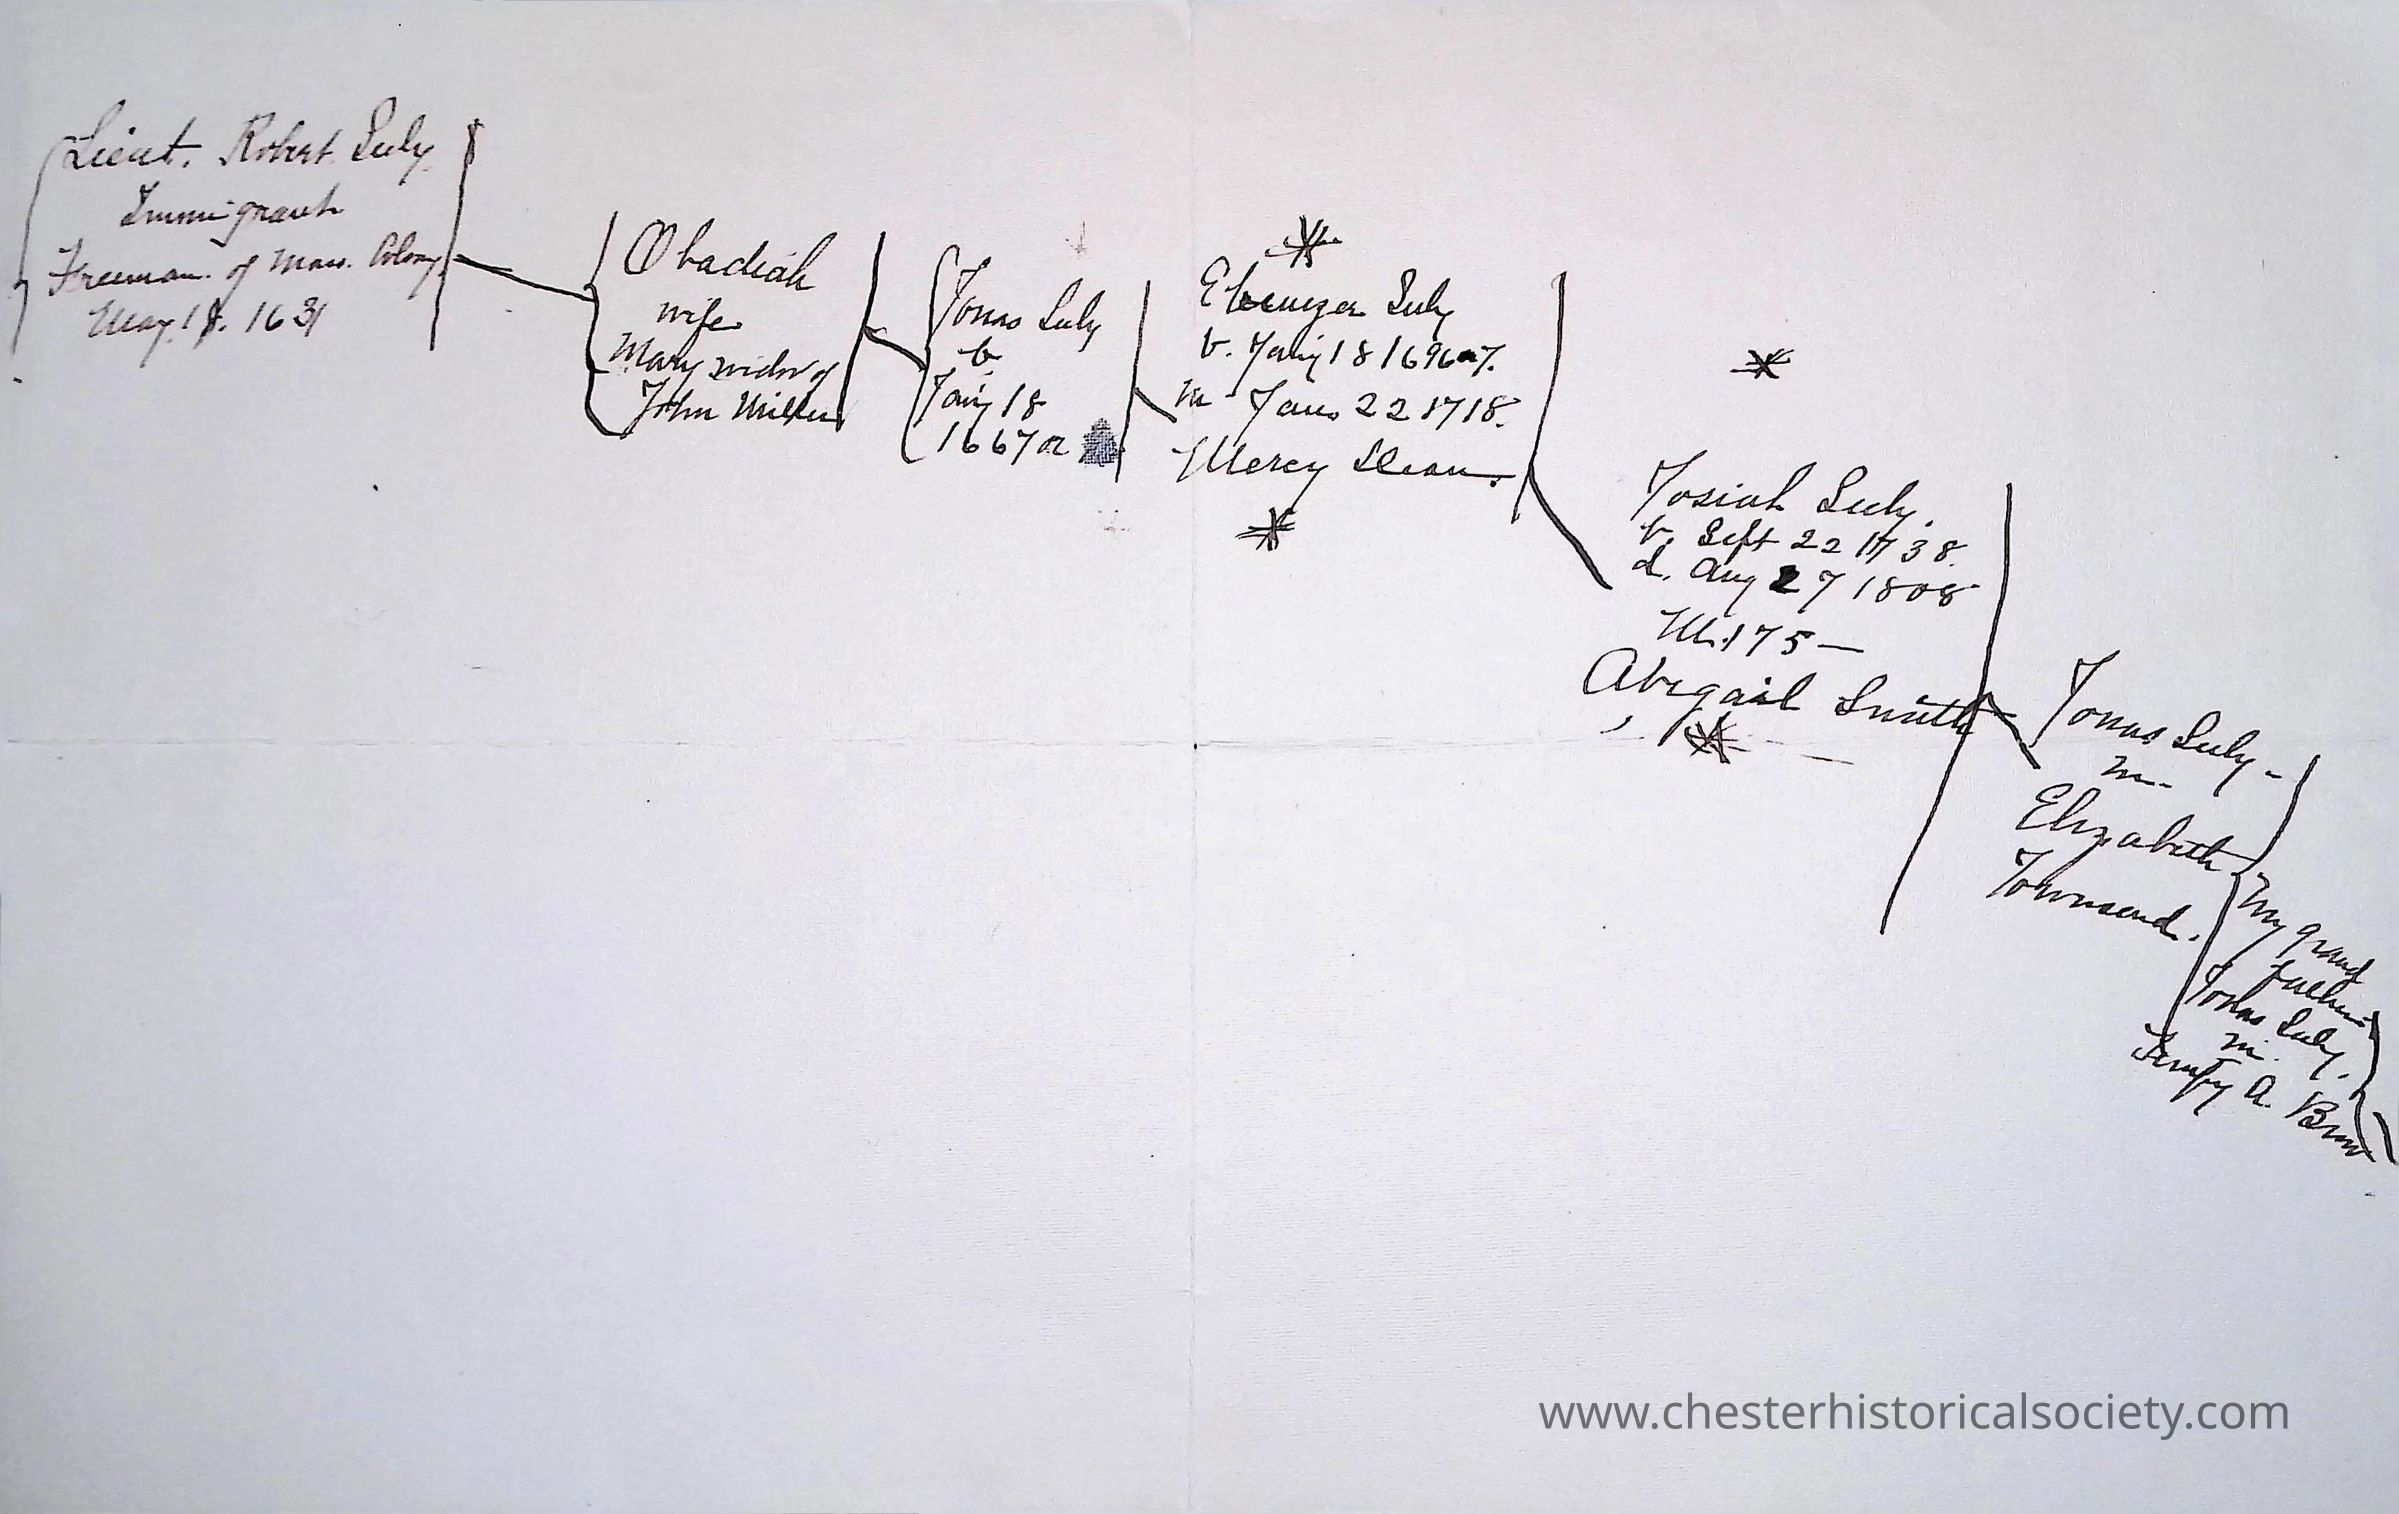 Lieut. Robert Seely
Immigrant
Freeman. of Mass. Colony.
May. 18. 1631
Obadiah
wife
Mary widow of
John Miller
Jonas Seely
b
Jany 18
1667 or
Ebenezer Seely
b. Jany 18 1696 or 7.
m Jan. 22 1718.
Mercy Dean.
Josiah Seely.
b. Sept 22 1738.
d. Aug 27 1808
M. 175—
Abigail Smith
Jonas Seely-
m-
Elizabeth
Townsend.
My grand
father
Jonas Seely,
m.
Tempy A. Brow
www.chesterhistoricalsociety.com